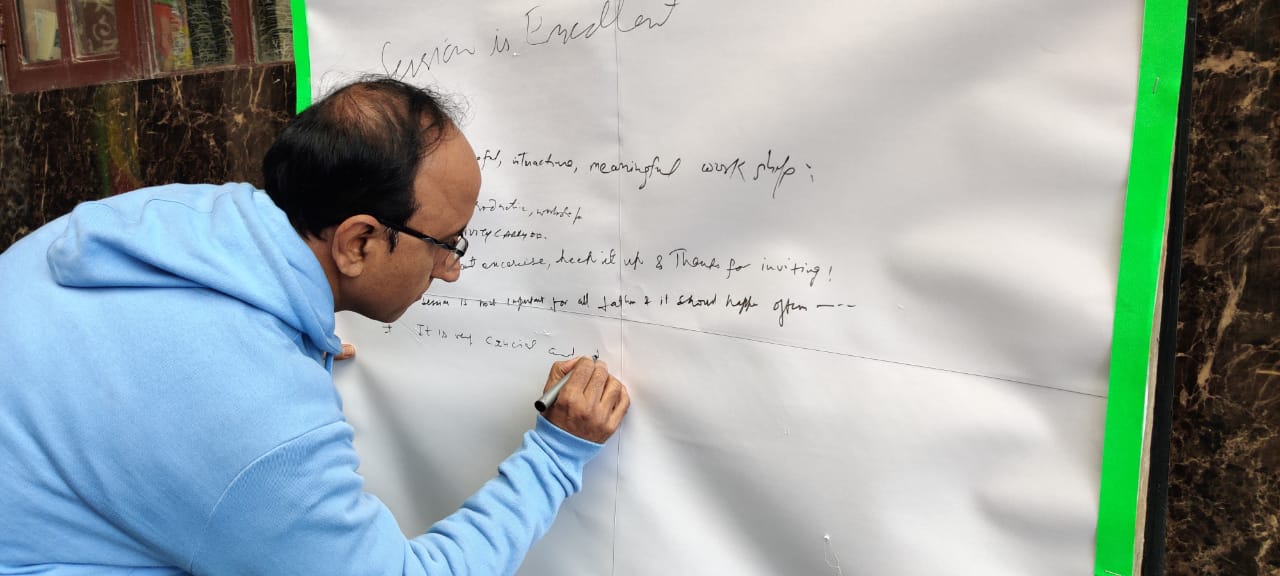 Session is Excellent
ful, interactive, meaningful work shop :
productive, workshop
IVITY CARRY ON.
excercise, keep it up & Thanks for inviting !
Session is most important for all father & it should happen often ----
It is very crucial and